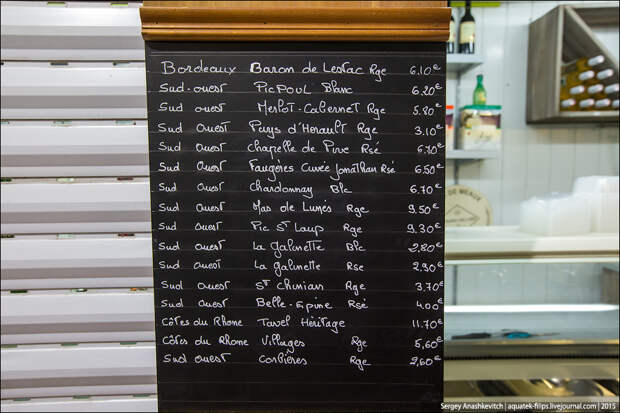 Bordeaux Baron de Lestac Rge 6.10€
Sud-ouest Picpoul Blanc 6.20€
Sud ouest Merlot-Cabernet Rge 5.80€
Sud ouest Puys d'Herault Rge 3.10€
Sud ouest Chapelle de Pive Rsé 6.70€
Sud ouest Faugères Cuvée Jonathan Rsé 6.50€
Sud ouest Chardonnay Blc 6.70€
Sud ouest Mas de Lunès Rge 9.50€
Sud ouest Pic St Loup Rge 9.30€
Sud ouest La galinette Blc 2.80€
Sud ouest La galinette Rse 2.90€
Sud ouest St Chinian Rge 3.70€
Sud ouest Belle-Epine Rsé 4.00€
Côtes du Rhome Tavel Héritage 11.70€
Côtes du Rhome Villages Rge 5,60€
Sud ouest Corbières Rge 2,60€
DE MEAUX
Sergey Anashkevitch | aquatek-filips.livejournal.com | 2015